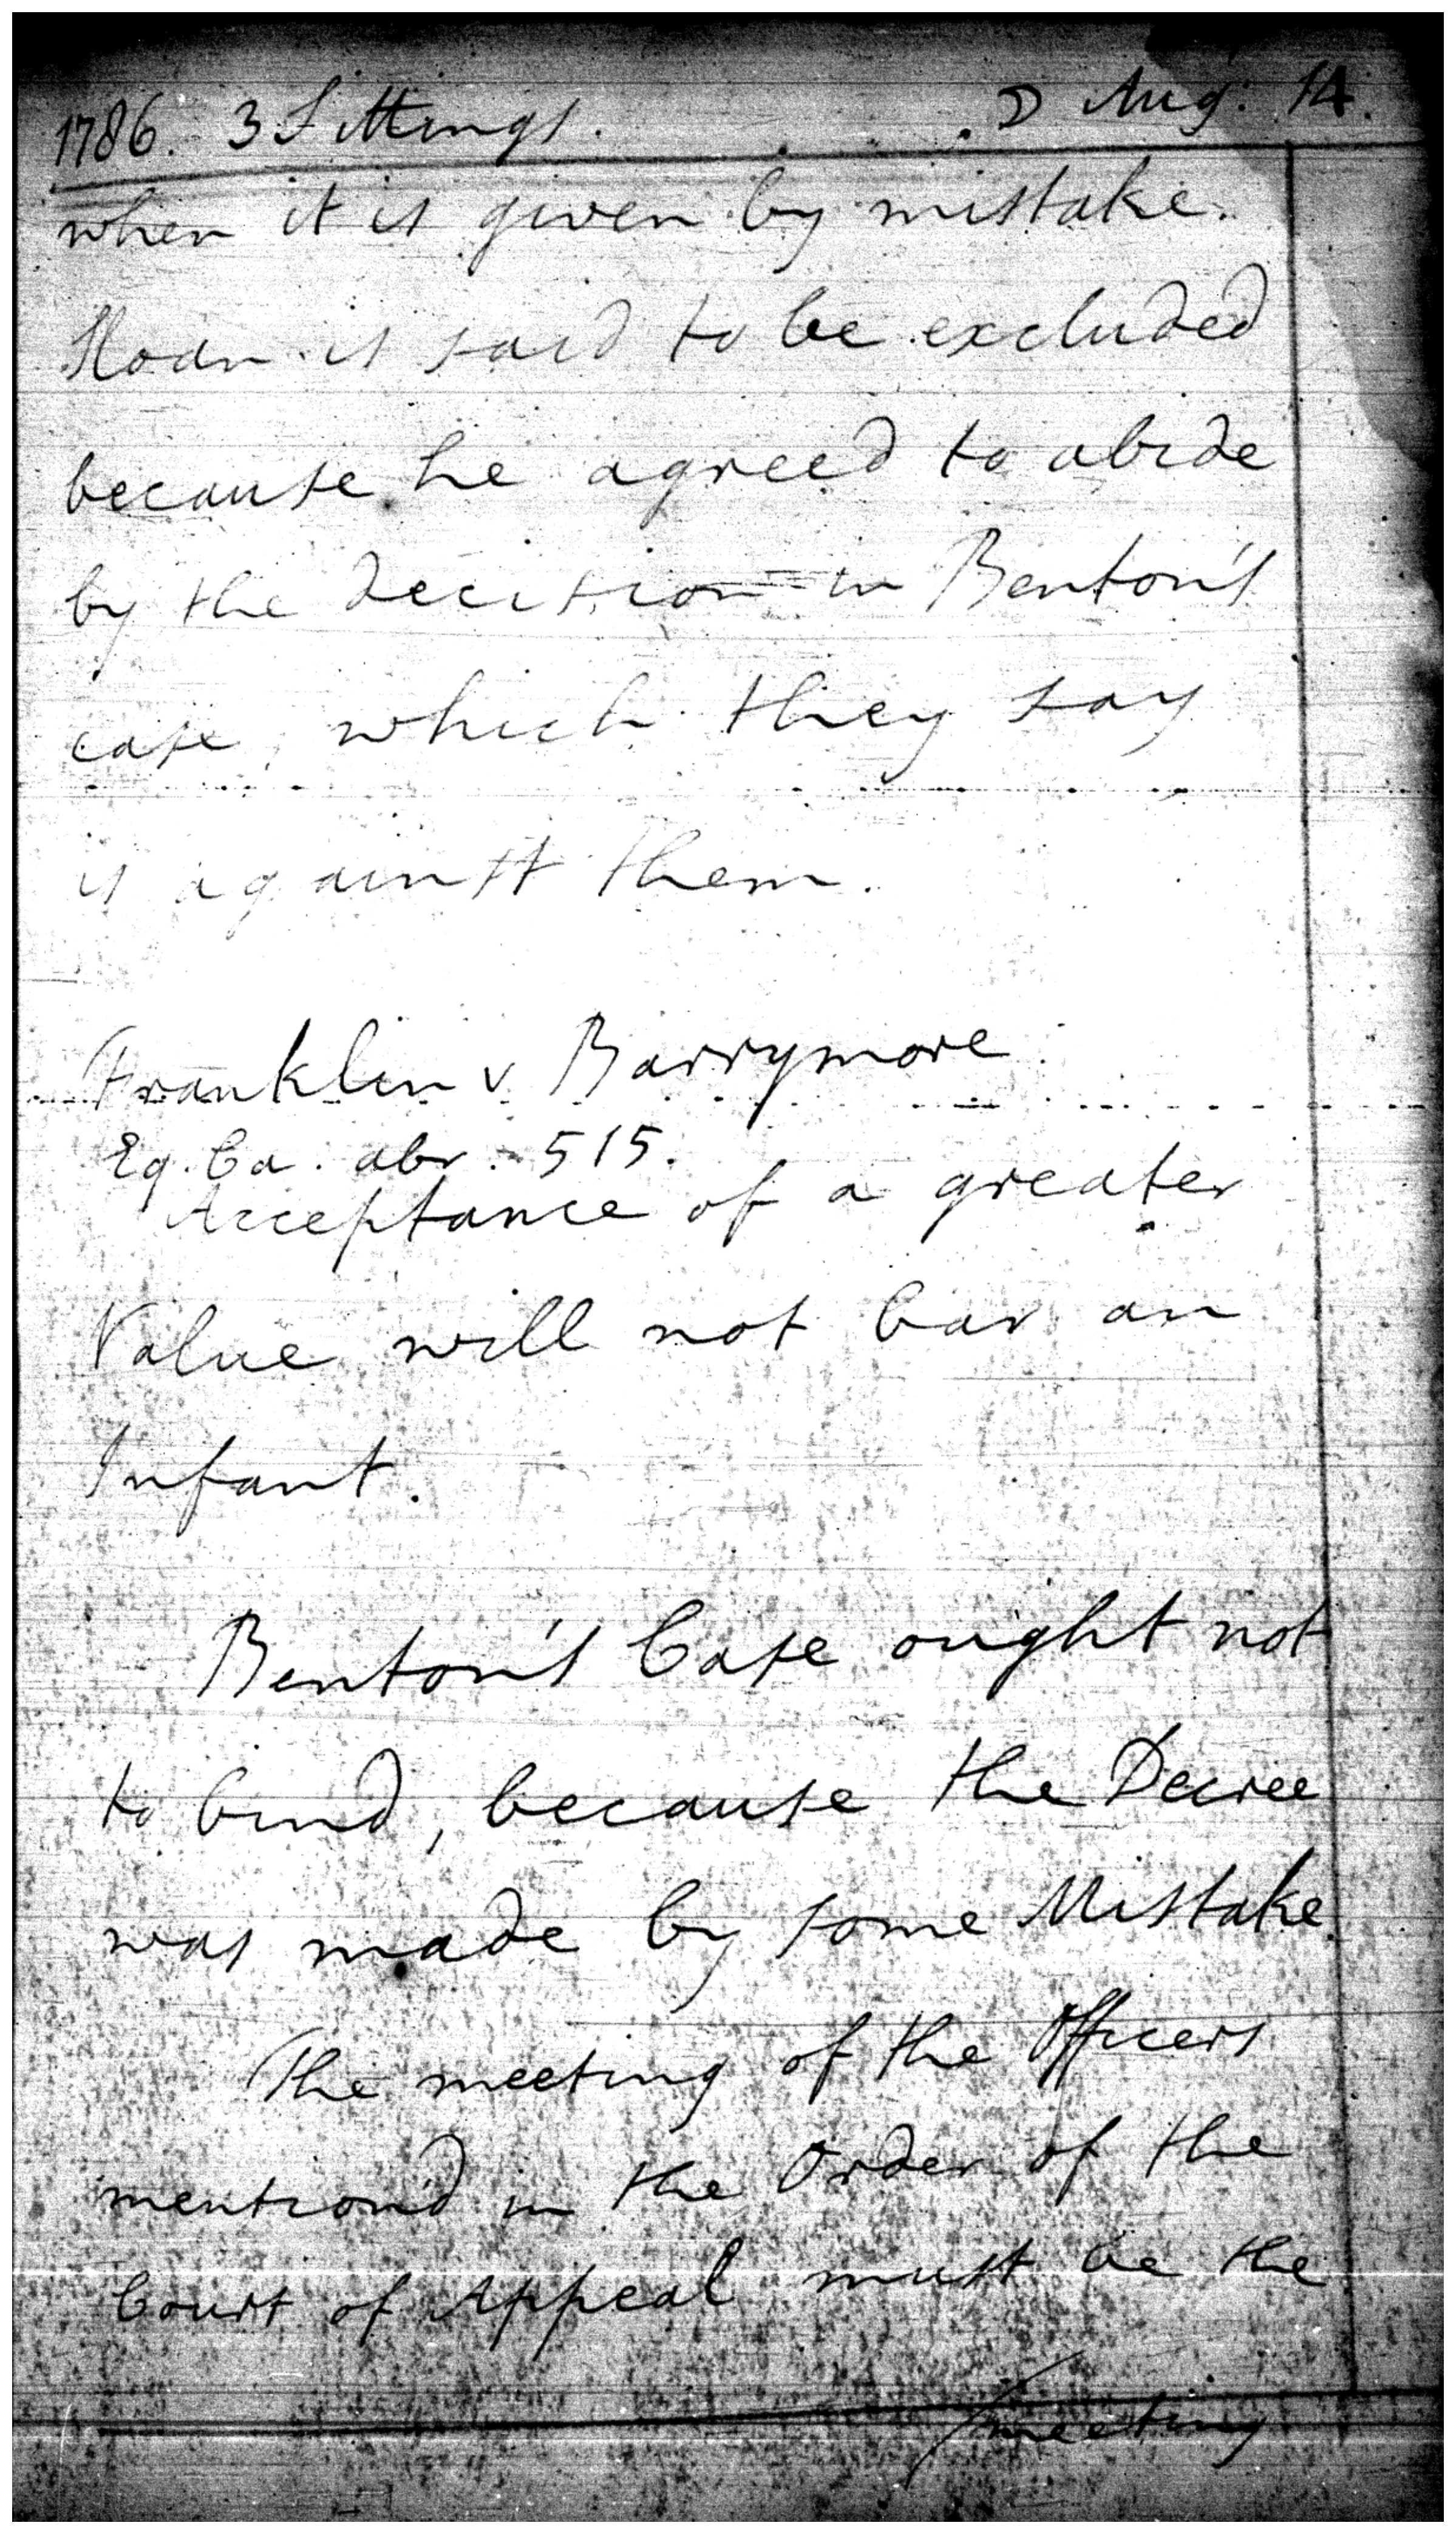 1786. 3 Sittings. ☽ Aug: 14.
when it is given by mistake.
Sloan is said to be excluded
because he agreed to abide
by the decision in Benton's
case, which they say
is against them.
Franklin v Barrymore.
Eq. Ca. abr. 515.
Acceptance of a greater
Value will not bar an
Infant.
Benton's Case ought not
to bind, because the Decree
was made by some Mistake.
The meeting of the Officers
mention'd in the Order of the
Court of Appeal must be the
/meeting